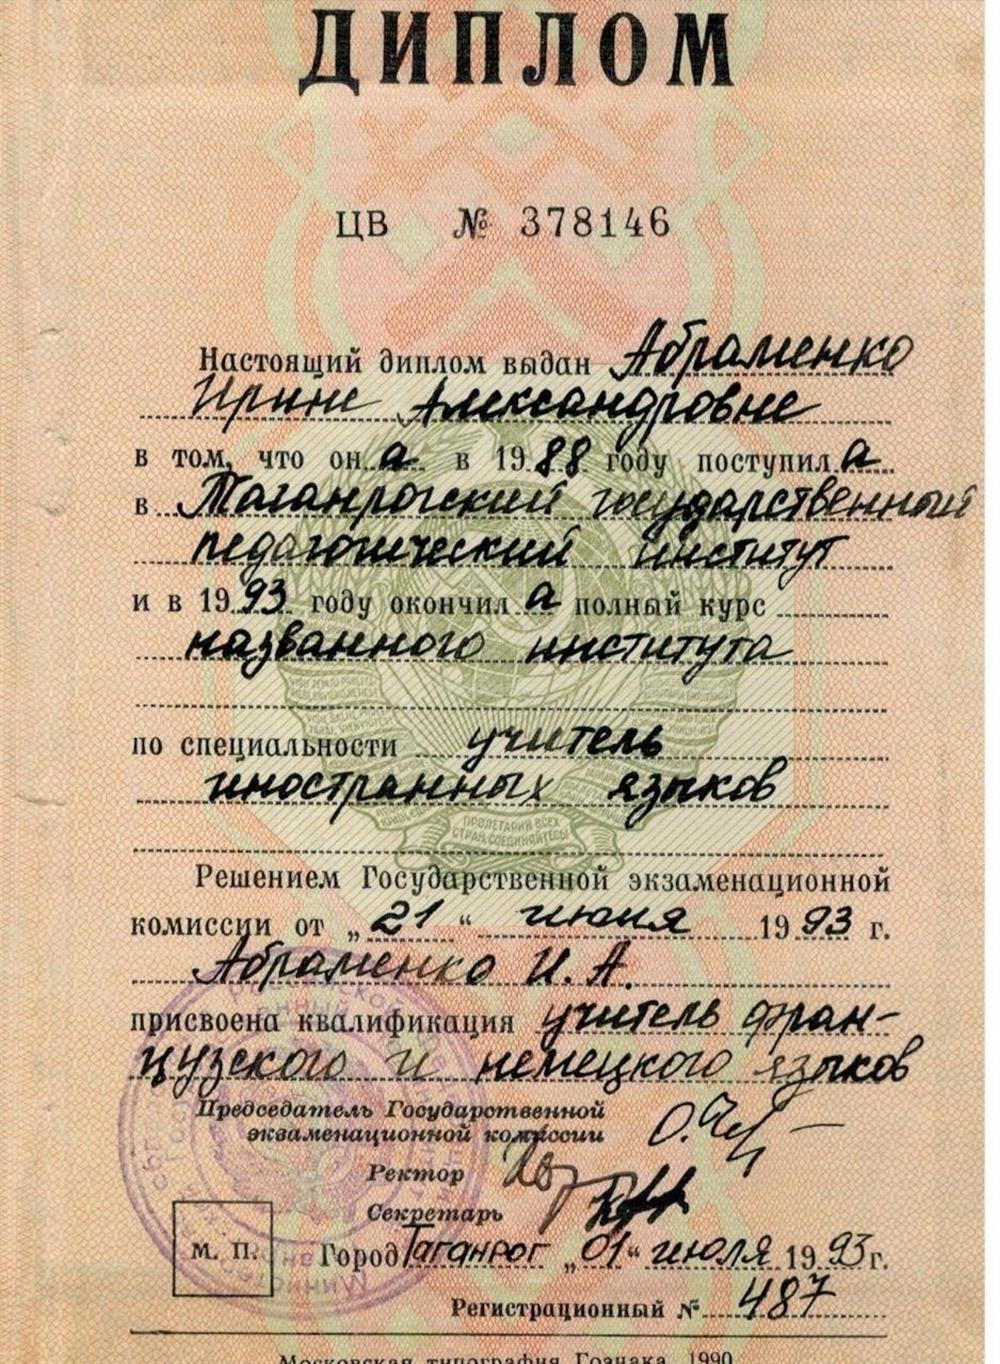 ДИПЛОМ
ЦВ № 378146
Настоящий диплом выдан Абраменко
Ирине Александровне
в том, что она в 1988 году поступила
в Таганрогский государственный
педагогический институт
и в 1993 году окончила полный курс
названного института
по специальности учитель
иностранных языков
ПРОЛЕТАРИИ ВСЕХ
СТРАН, СОЕДИНЯЙТЕСЬ!
Решением Государственной экзаменационной
комиссии от „21“ июня 1993 г.
Абраменко И. А.
присвоена квалификация учитель фран-
цузского и немецкого языков
Председатель Государственной
экзаменационной комиссии
Ректор
Секретарь
М. П.
Город Таганрог „01“ июля 1993 г.
Регистрационный № 487
Московская типография Гознака. 1990.